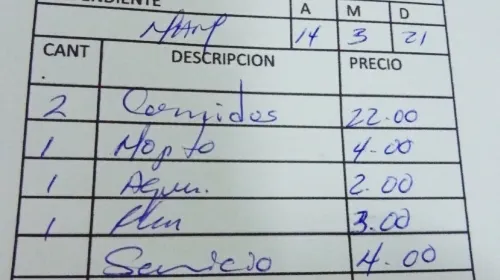 ENDIENTE A M D
14 3 21
CANT. DESCRIPCION PRECIO
2 Comidas 22.00
1 Mojito 4.00
1 Agua. 2.00
1 3.00
Servicio 4.00